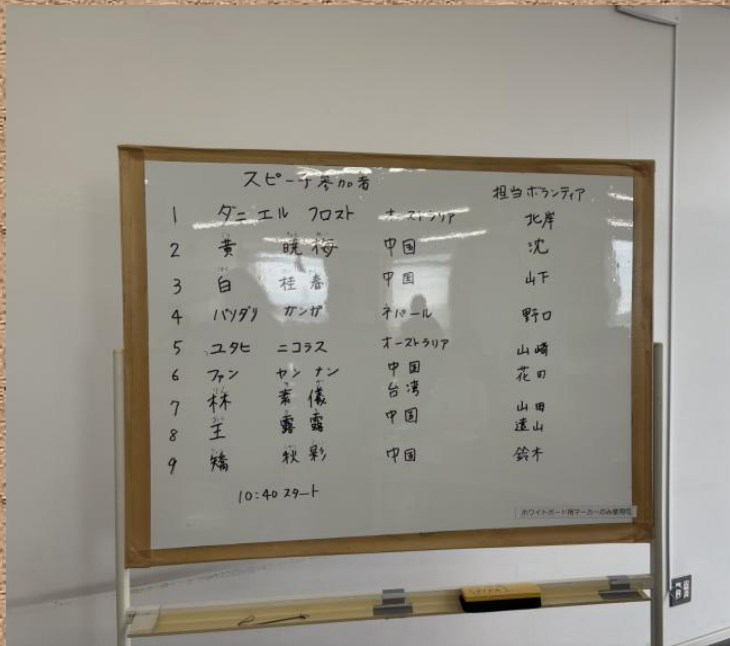 スピーチ参加者 担当ボランティア
1 ダニエル フロスト オーストラリア 北岸
2 黄 暁梅 中国 沈
3 白 桂春 中国 山下
4 バンダリ カンガ ネパール 野口
5 ユタヒ ニコラス オーストラリア 山崎
6 ファン ヤンナン 中国 花田
7 林 素儀 台湾 山田
8 王 露露 中国 遠山
9 矯 秋彩 中国 鈴木
10:40 スタート
ホワイトボード用マーカーのみ使用可